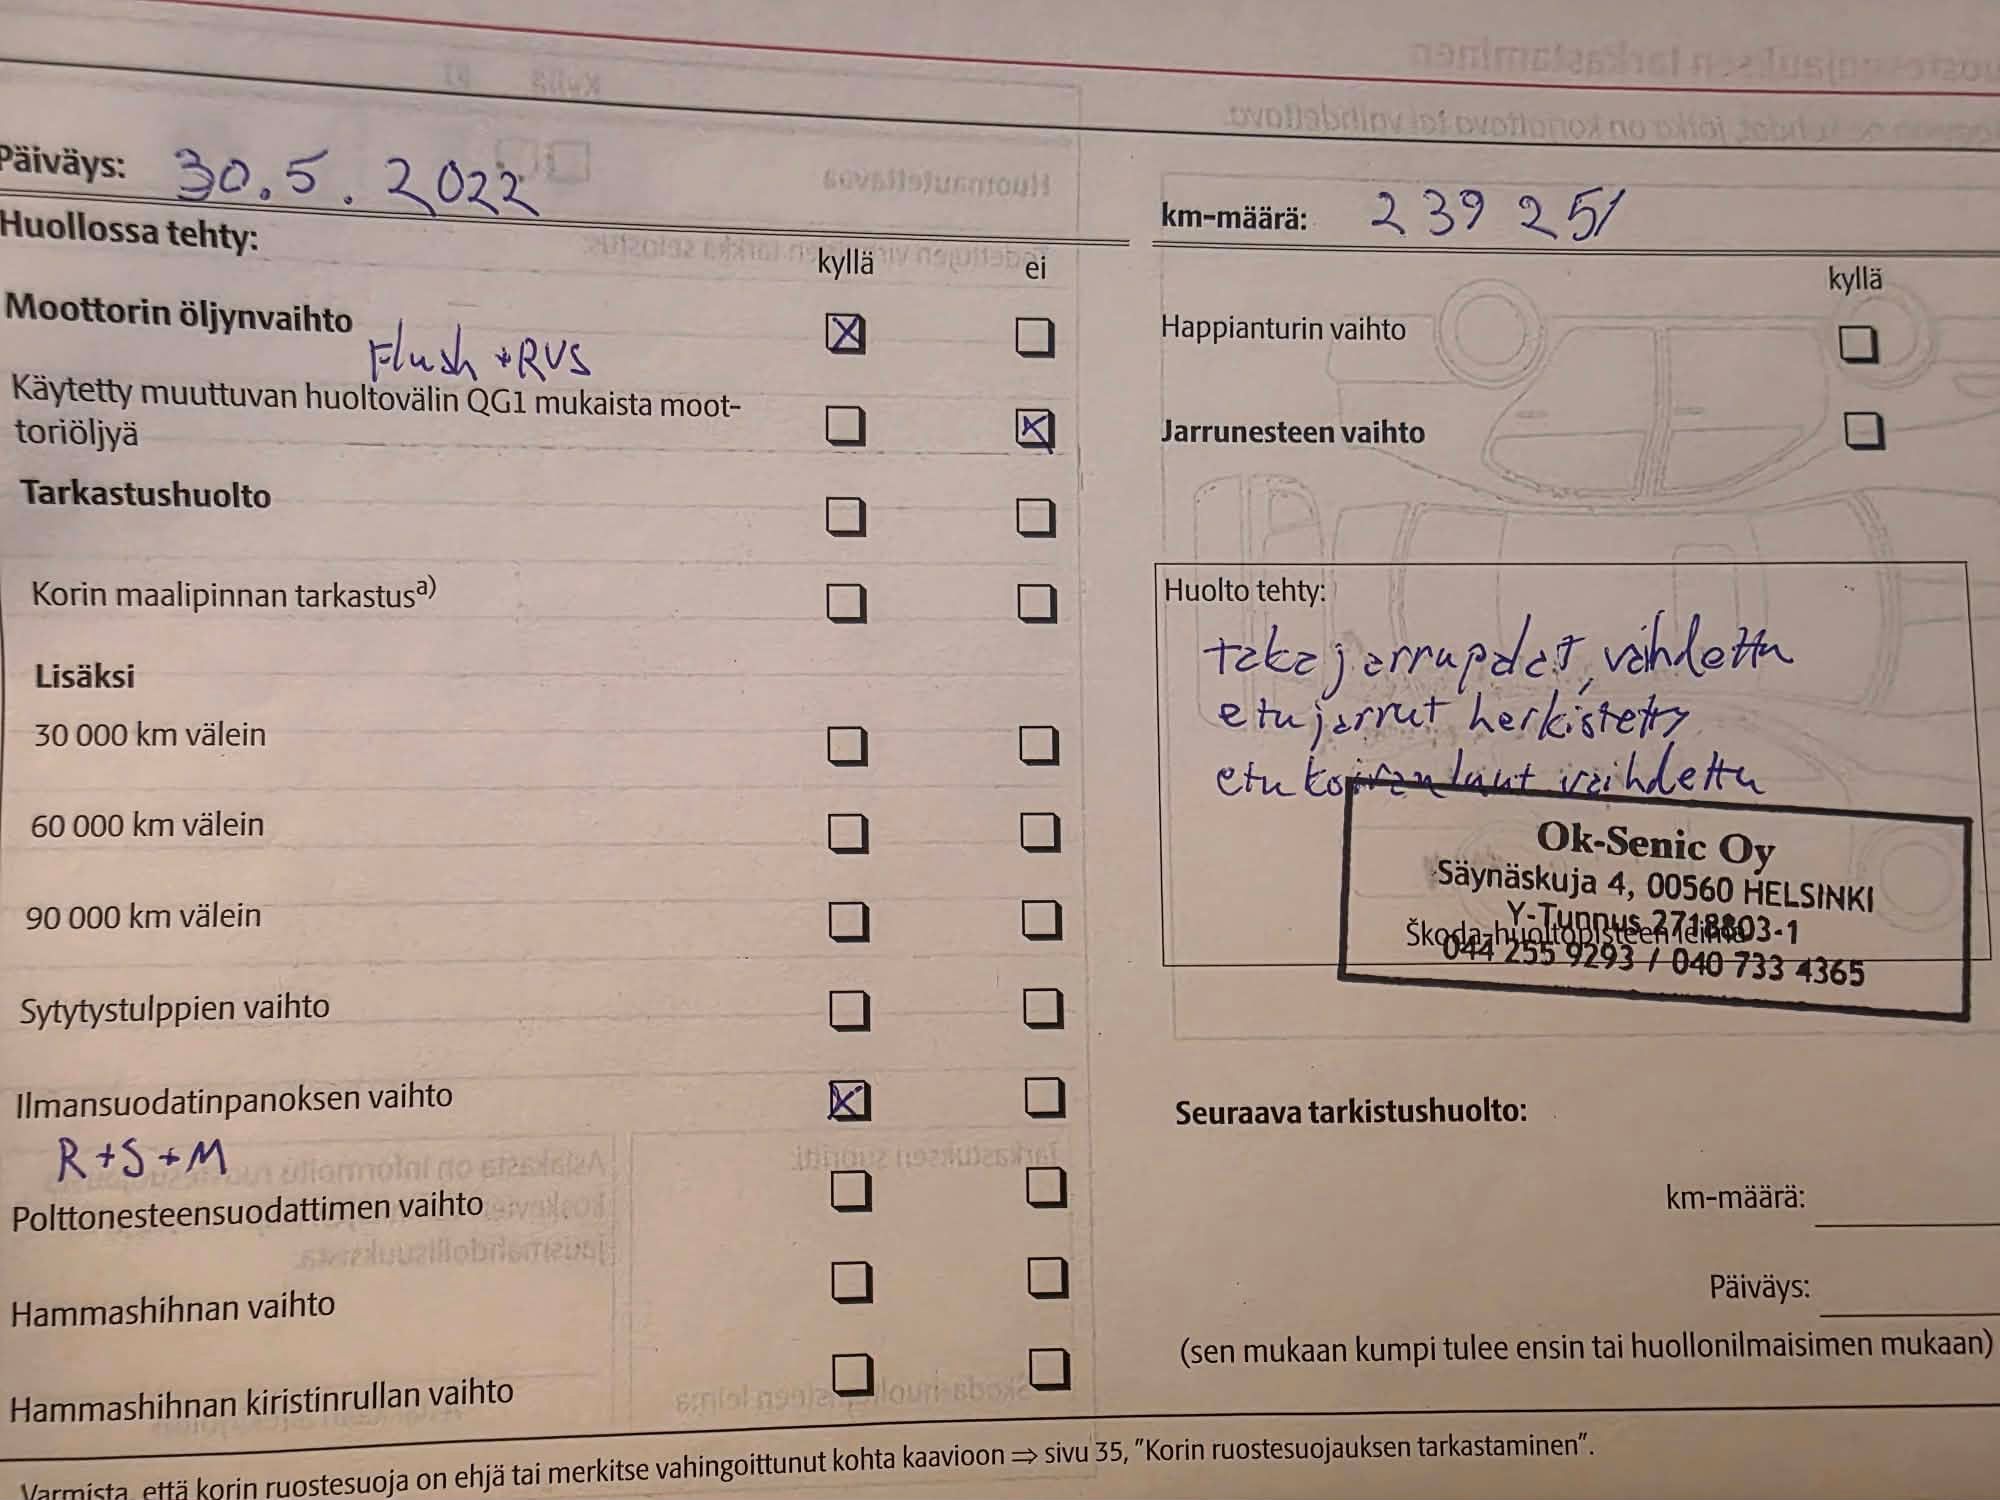 Päiväys: 30.5.2022
km-määrä: 239 251
Huollossa tehty:
kyllä ei
kyllä
Moottorin öljynvaihto
Flush + RVS
Käytetty muuttuvan huoltovälin QG1 mukaista moot-
toriöljyä
Tarkastushuolto
Korin maalipinnan tarkastusa)
Lisäksi
30 000 km välein
60 000 km välein
90 000 km välein
Sytytystulppien vaihto
Ilmansuodatinpanoksen vaihto
R+S+M
Polttonesteensuodattimen vaihto
Hammashihnan vaihto
Hammashihnan kiristinrullan vaihto
Happianturin vaihto
Jarrunesteen vaihto
Huolto tehty:
takajarrupalat, vaihdettu
etujarrut herkistetty
etu koiranluut vaihdettu
Ok-Senic Oy
Säynäskuja 4, 00560 HELSINKI
Y-Tunnus 2718803-1
Škoda-huoltopisteen leima
044 255 9293 / 040 733 4365
Seuraava tarkistushuolto:
km-määrä:
Päiväys:
(sen mukaan kumpi tulee ensin tai huollonilmaisimen mukaan)
Varmista, että korin ruostesuoja on ehjä tai merkitse vahingoittunut kohta kaavioon ⇒ sivu 35, "Korin ruostesuojauksen tarkastaminen".